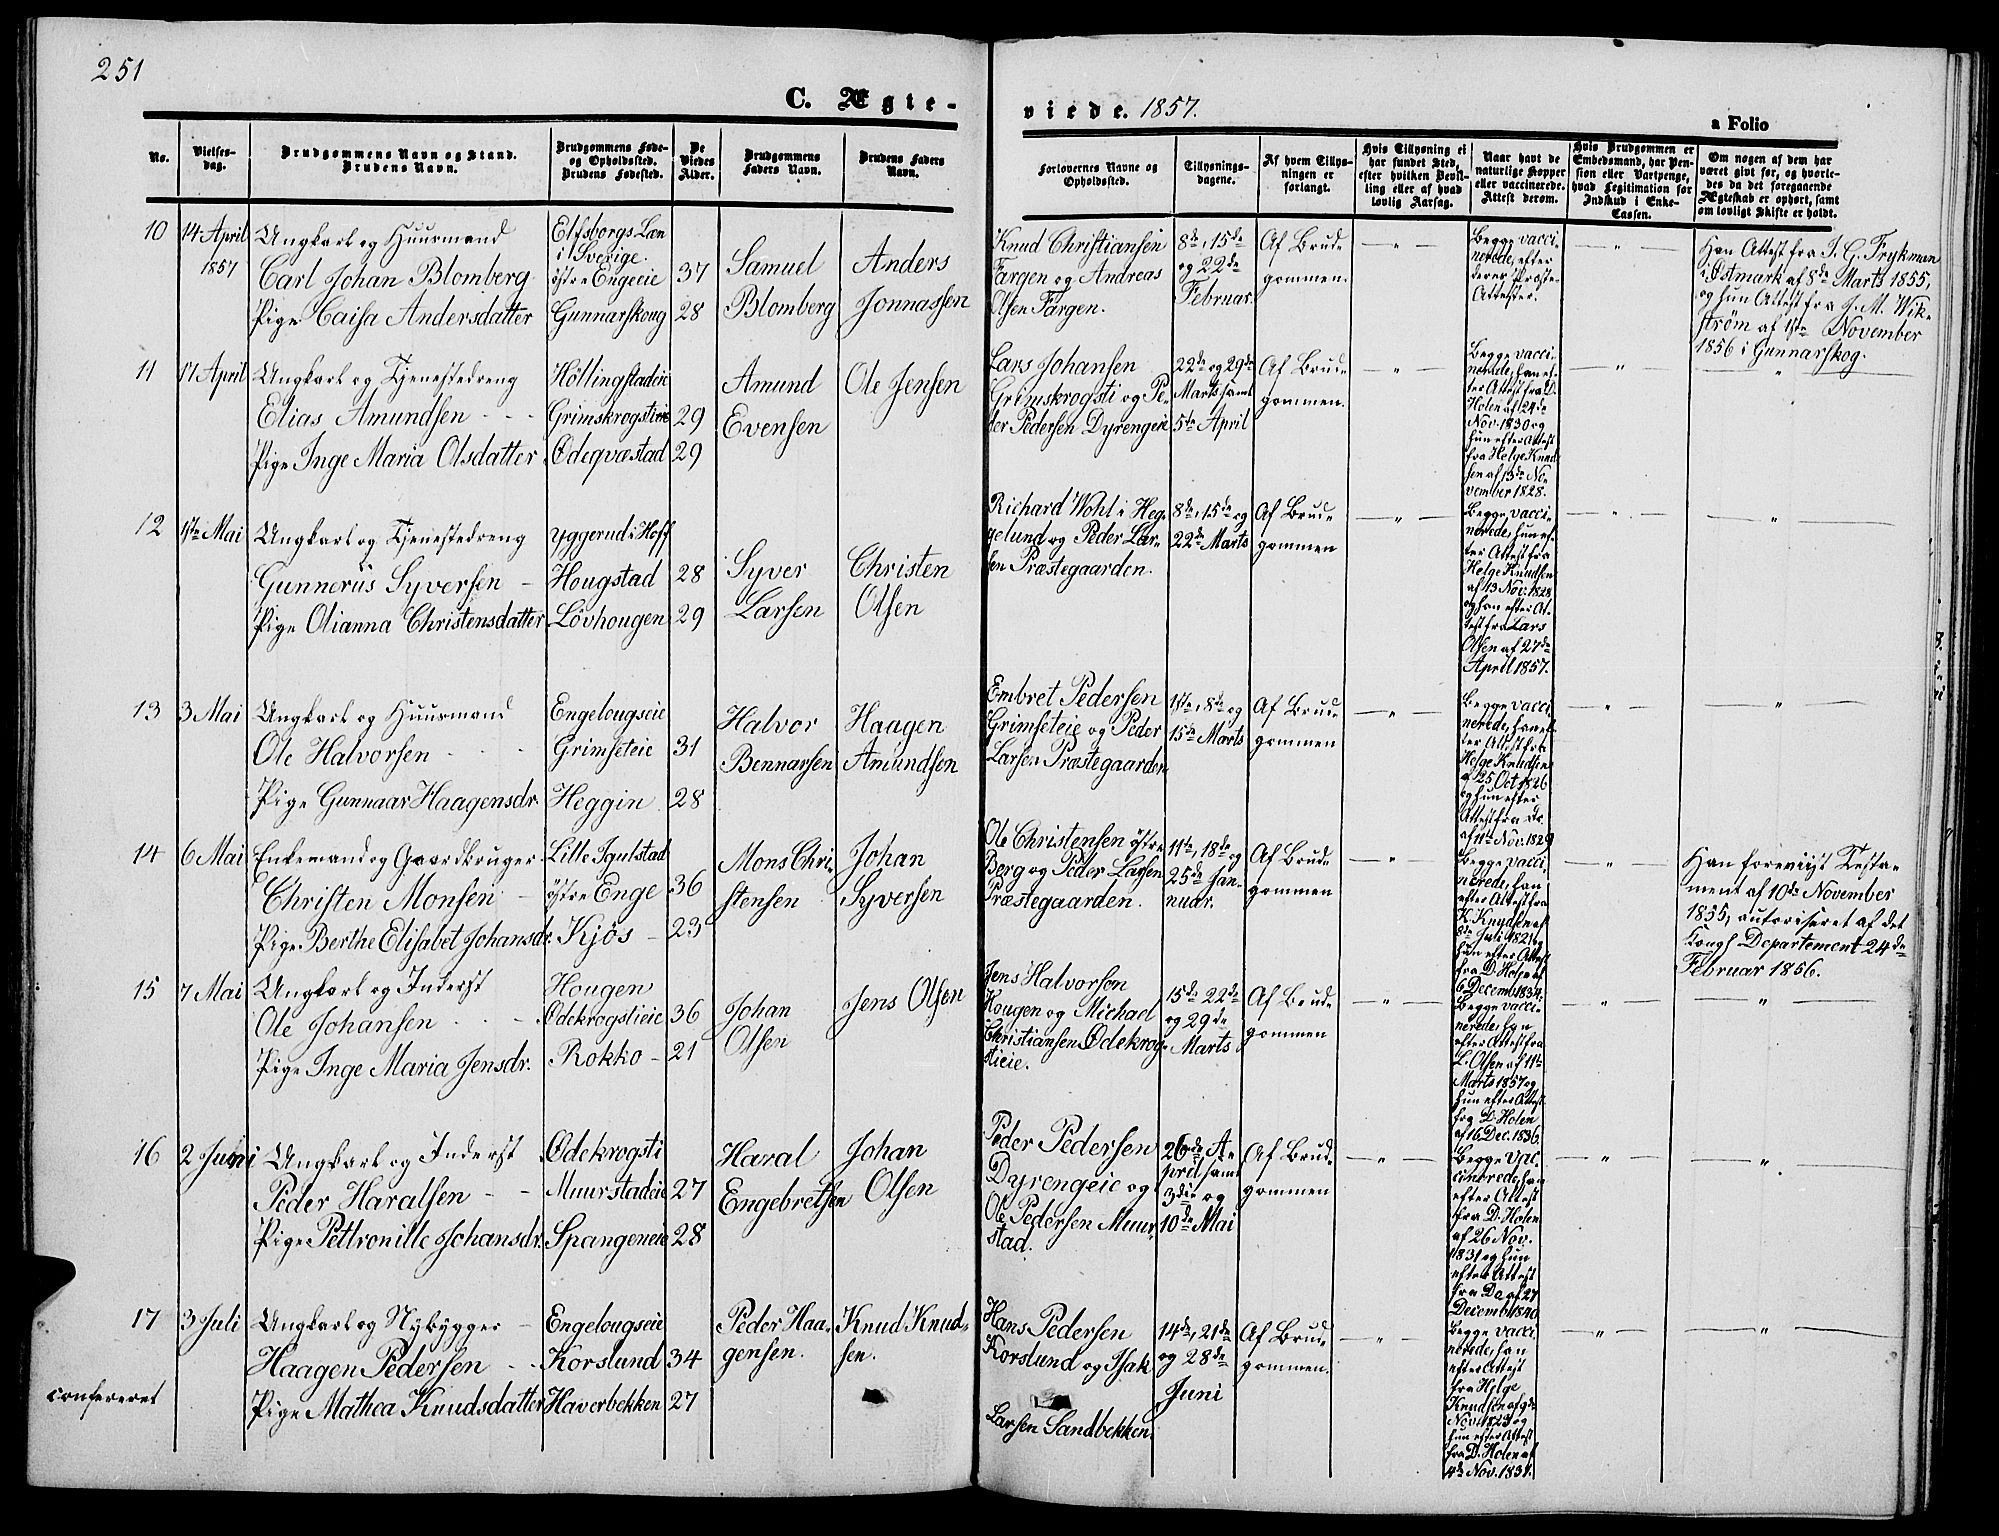 251
C. Ægte-
viede. 1857.
a Folio
No.
Vielses-
dag.
Brudgommens Navn og Stand.
Brudens Navn.
Brudgommens Føde-
og Opholdssted.
Brudens Fødested.
De
Viedes
Alder.
Brudgommens
Faders Navn.
Brudens Faders
Navn.
Forlovernes Navne og
Opholdssted.
Tillysnings-
dagene.
Af hvem Tillys-
ningen er
forlangt.
Hvis Tillysning ei
har fundet Sted,
efter hvilken Bevil-
ling eller af hvad
lovlig Aarsag.
Naar havt de
naturlige Kopper
eller vaccinerede.
Attest derom.
Hvis Brudgommen er
Embedsmand, har Pen-
sion eller Vartpenge,
hvad Legitimation for
Indskud i Enke-
Cassen.
Om nogen af dem har
været givt før, og hvorle-
des da det foregaaende
Ægteskab er ophørt, samt
om lovligt Skifte er holdt.
10
14 April
1857
Ungkarl og Huusmand
Carl Johan Blomberg
Pige Caisa Andersdatter
Elfsborgs Læn
i Sverige.
østre Engeeie
Gunnarskoug
37
28
Samuel
Blomberg
Anders
Jonnassen
Knud Christiansen
Fargen og Andreas
Olsen Fargen.
8de, 15de
og 22de
Februar.
Af Brud-
gommen.
— " —
Begge vacci-
nerede, efter
deres Præste-
Attester.
— " —
Han Attest fra J. G. Frykman
i Østmark af 8de Marts 1855,
og hun Attest fra J. M. Wik-
strøm af 1ste November
1856 i Gunnarskog.
11
17 April
Ungkarl og Tjenestedreng
Elias Amundsen - - -
Pige Inge Maria Olsdatter
Höllingstadeie
Grimskrogstieie
Ödeqvæstad
29
29
Amund
Evensen
Ole Jensen
Lars Johansen
Grimskrogsti og Pe-
der Pedersen Dyrengeie
22de og 29de
Marts samt
5te April
Af Brud-
gommen.
— " —
Begge vacci-
nerede, han ef-
ter Attest fra D.
Holen af 24de
Nov. 1830 og
hun efter Attest
fra Helge Knud-
sen af 13de No-
vember 1828.
— " —
— " —
12
1ste Mai
Ungkarl og Tjenestedreng
Gunnerus Syversen -
Pige Olianna Christensdatter
Yggerud i Hoff
Hougstad
Lövhougen
28
29
Syver
Larsen
Christen
Olsen
Richard Wohl i Heg-
gelund og Peder Lar-
sen Præstegaarden.
8de, 15de og
22de Marts
Af Brud-
gommen
— " —
Begge vacci-
nerede, hun ef-
ter Attest fra
Helge Knudsen
af 13 Nov. 1828
og han efter At-
test fra Lars
Olsen af 27de
April 1857.
— " —
— " —
13
3 Mai
Ungkarl og Huusmand
Ole Halvorsen - - -
Pige Gunnaar Haagensdr.
Engelougseie
Grimseteie
Heggin
31
28
Halvor
Bennarsen
Haagen
Amundsen
Embret Pedersen
Grimseteie og Peder
Larsen Præstegaarden
1ste, 8de og
15de Marts
Af Brud-
gommen
— " —
Begge vacci-
nerede, han ef-
ter Attest fra
Helge Knudsen
af 25 Oct 1826
og hun efter
Attest fra Do.
af 11te Nov. 1829
— " —
— " —
14
6 Mai
Enkemand og Gaardbruger
Christen Monsen -
Pige Berthe Elisabet Johansdr.
Lille Igulstad
østre Enge
Kjös -
36
23
Mons Chri-
stensen
Johan
Syversen
Ole Christensen østre
Berg og Peder Larsen
Præstegaarden.
11te, 18de og
25de Jan-
nuar.
Af Brud-
gommen
— " —
Begge vacci-
nerede, han
efter Attest fra
K. Knudsen af
8de Juli 1821 og
hun efter Attest
fra D. Holen af
6 Decemb 1834.
— " —
Han foreviist Testa-
ment af 10de November
1855, autoriseret af det
Kongl Departement 24de
Februar 1856.
15
7 Mai
Ungkarl og Inderst
Ole Johansen - - -
Pige Inge Maria Jensdr.
Hougen
Ödekrogstieie
Rokko -
36
21
Johan
Olsen
Jens Olsen
Jens Halvorsen
Hougen og Michael
Christiansen Ödekrog-
stieie.
15de 22de
og 29de
Marts
Af Brud-
gommen
— " —
Begge vacci-
nerede, han
efter Attest fra
L. Olsen af 11te
Marts 1857 og
hun efter Attest
fra D. Holen
af 16 Dec. 1836.
— " —
— " —
16
2 Juni
Ungkarl og Inderst
Peder Haralsen - -
Pige Pettronille Johansdr.
Ödekrogsti
Muurstadeie
Spangeneie
27
28
Haral
Engebretsen
Johan
Olsen
Peder Pedersen
Dyrengeie og
Ole Pedersen Muur-
stad.
26de A-
pril samt
3die og
10de Mai
Af Brud-
gommen
— " —
Begge vac-
cinerede, han
efter Attest
fra D. Holen
af 26 Nov.
1831 og hun
efter Attest
fra Do af 27
Decemb 1840
— " —
— " —
17
3 Juli
Ungkarl og Nybygger -
Haagen Pedersen - -
Pige Mathea Knudsdatter
confereret
Engelougseie
Korslund
Haverbekken
34
27
Peder Haa-
gensen.
Knud Knud-
sen.
Hans Pedersen
Korslund og Isak
Larsen Sandbekken.
14de, 21de
og 28de
Juni
Af Brud-
gommen.
— " —
Begge vacci-
nerede, han
efter Attest
fra Helge
Knudsen af 9de
Nov. 1823 og
hun efter Attest
fra D. Holen af
4de Nov. 1831.
— " —
— " —